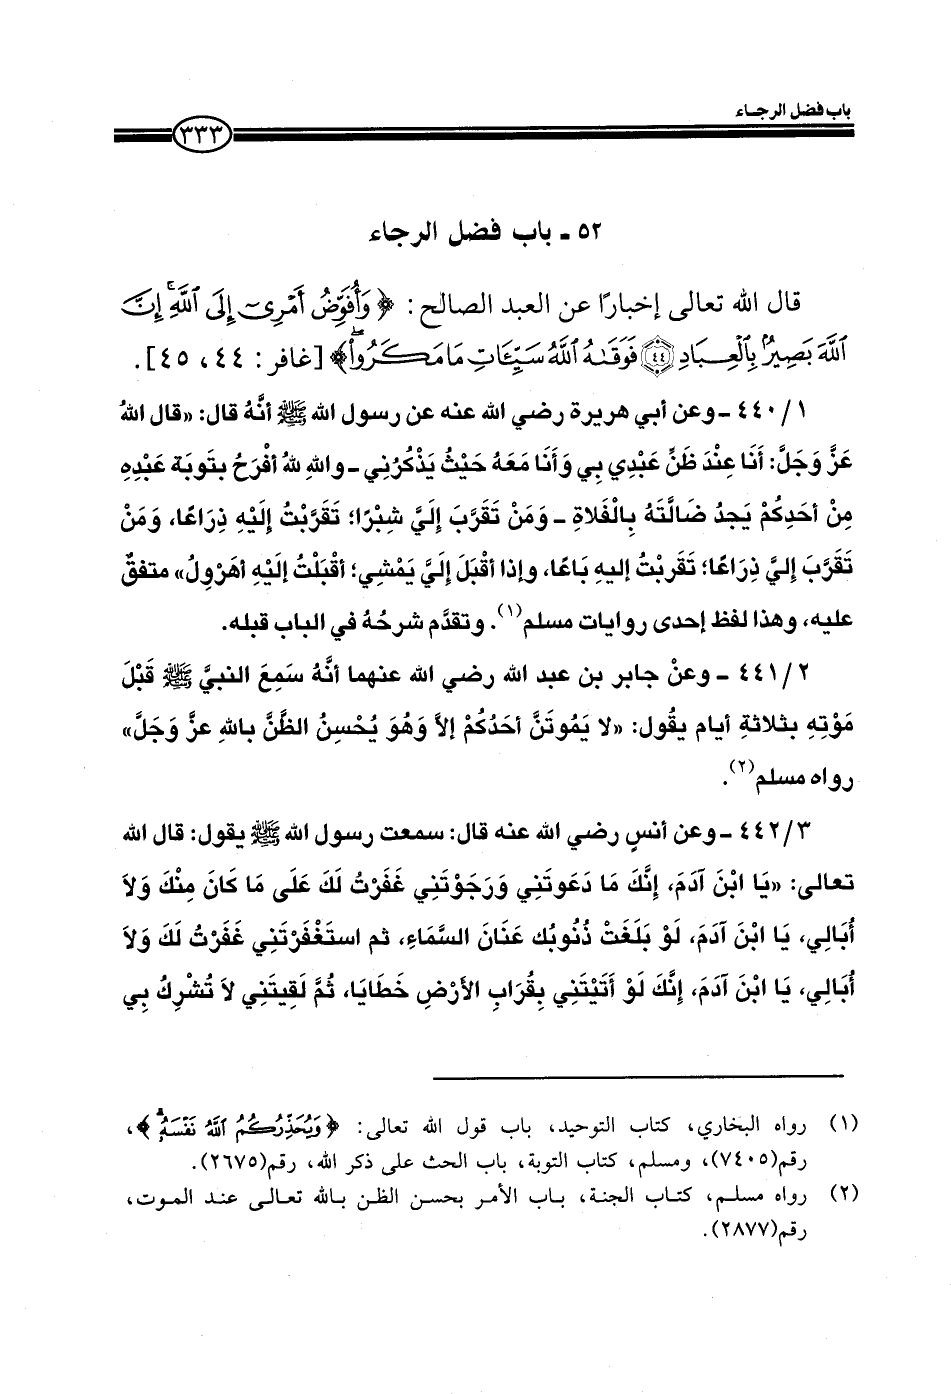 باب فضل الرجـاء
٣٣٣
٥٢ ـ باب فضل الرجاء
قال الله تعالى إخبارًا عن العبد الصالح: ﴿وَأُفَوِّضُ أَمْرِىٓ إِلَى ٱللَّهِۚ إِنَّ
ٱللَّهَ بَصِيرُۢ بِٱلْعِبَادِ ٤٤ فَوَقَىٰهُ ٱللَّهُ سَيِّـَٔاتِ مَا مَكَرُواْۖ﴾ [غافر: ٤٤، ٤٥].
٤٤٠/١ ـ وعن أبي هريرة رضي الله عنه عن رسول الله ﷺ أنَّهُ قال: «قال اللهُ
عَزَّ وَجَلَّ: أَنَا عِنْدَ ظَنِّ عَبْدِي بِي وَأَنَا مَعَهُ حَيْثُ يَذْكُرُني ـ واللهِ للهُ أفْرَحُ بتَوبَة عَبْدِهِ
مِنْ أحَدِكُمْ يَجدُ ضَالَّتَهُ بِالْفَلاةِ ـ وَمَنْ تَقَرَّبَ إلَيَّ شِبْرًا؛ تَقَرَّبْتُ إلَيْهِ ذِرَاعًا، وَمَنْ
تَقَرَّبَ إليَّ ذِرَاعًا؛ تَقَربْتُ إليهِ بَاعًا، وإذا أقْبَلَ إلَيَّ يَمْشِي؛ أقْبَلْتُ إلَيْهِ أهَرْوِلُ» متفقٌ
عليه، وهذا لفظ إحدى روايات مسلم(١). وتقدَّم شرحُهُ في الباب قبله.
٤٤١/٢ ـ وعنْ جابر بن عبد الله رضي الله عنهما أنَّهُ سَمِعَ النبيَّ ﷺ قَبْلَ
مَوْتِهِ بثلاثةِ أيام يقُول: «لا يَمُوتَنَّ أحَدُكُمْ إلاَّ وَهُوَ يُحْسِنُ الظَّنَّ باللهِ عزَّ وَجَلَّ»
رواه مسلم(٢).
٤٤٢/٣ ـ وعن أنسٍ رضي الله عنه قال: سمعت رسول الله ﷺ يقول: قال الله
تعالى: «يَا ابْنَ آدَمَ، إنَّكَ مَا دَعَوتَني وَرَجَوْتَني غَفَرْتُ لَكَ عَلَى مَا كَانَ مِنْكَ وَلاَ
أُبَالِي، يَا ابْنَ آدَمَ، لَوْ بَلَغَتْ ذُنُوبُك عَنَانَ السَّمَاءِ، ثم استَغْفَرْتَني غَفَرْتُ لَكَ وَلاَ
أُبَالِي، يَا ابْنَ آدَمَ، إنَّكَ لَوْ أتَيْتَني بِقُرَابِ الأَرْضِ خَطَايَا، ثُمَّ لَقِيتَنِي لاَ تُشْرِكُ بِي
(١) رواه البخاري، كتاب التوحيد، باب قول الله تعالى: ﴿وَيُحَذِّرُكُمُ ٱللَّهُ نَفْسَهُۥۗ﴾،
رقم(٧٤٠٥)، ومسلم، كتاب التوبة، باب الحث على ذكر الله، رقم(٢٦٧٥).
(٢) رواه مسلم، كتاب الجنة، باب الأمر بحسن الظن بالله تعالى عند الموت،
رقم(٢٨٧٧).